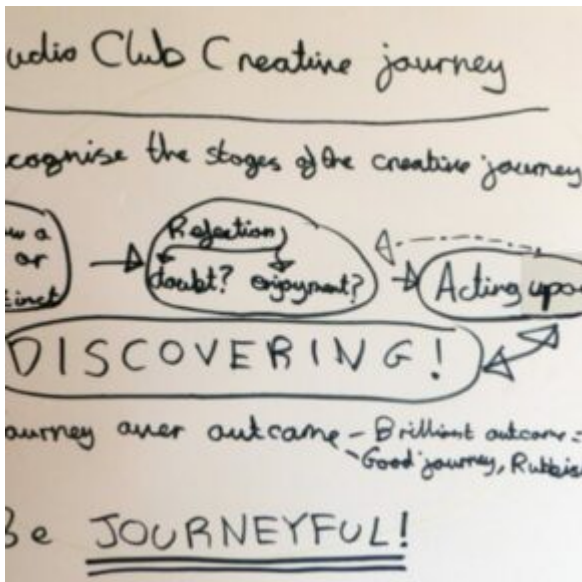 udio Club Creative journey
cognise the stages of the creative journey
w a
or
tinct
Reflection
doubt? enjoyment?
Acting upo
DISCOVERING!
ourney over outcome - Brilliant outcome =
- Good journey, Rubbis
Be JOURNEYFUL!